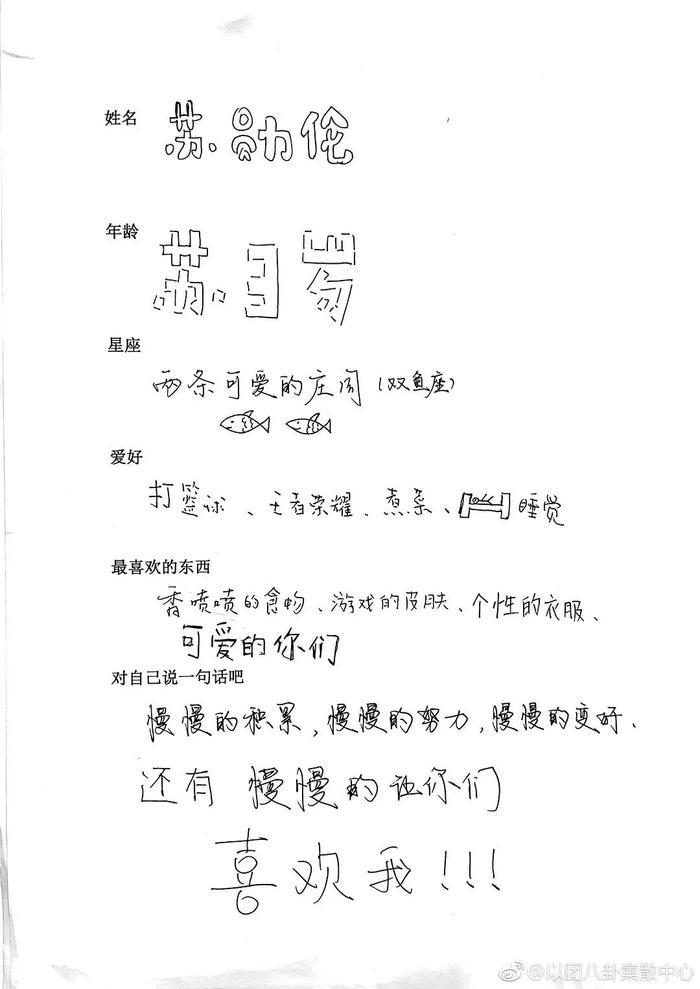 姓名 苏.勋伦
年龄
星座
两条可爱的庄周(双鱼座)
爱好
打篮球、王者荣耀、煮菜、睡觉
最喜欢的东西
香喷喷的食物、游戏的皮肤、个性的衣服、
可爱的你们
对自己说一句话吧
慢慢的积累,慢慢的努力,慢慢的变好、
还有 慢慢的让你们
喜欢我!!!
@以团八卦集散中心